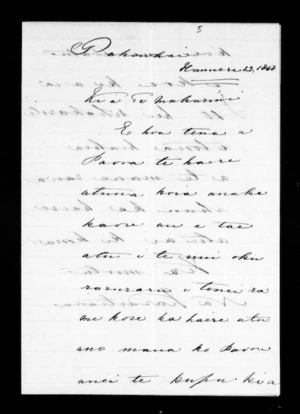 5
Pakowhai
Hanuere 23, 1868
Kia Te Makarini
E hoa tena a
Paora te haere
atuna, koia anake
kaore au e tae
atu i te nui oku
raruraru i tenei ra
me kore ka haere atu
ano maua ko Paora
anei te kupu kia